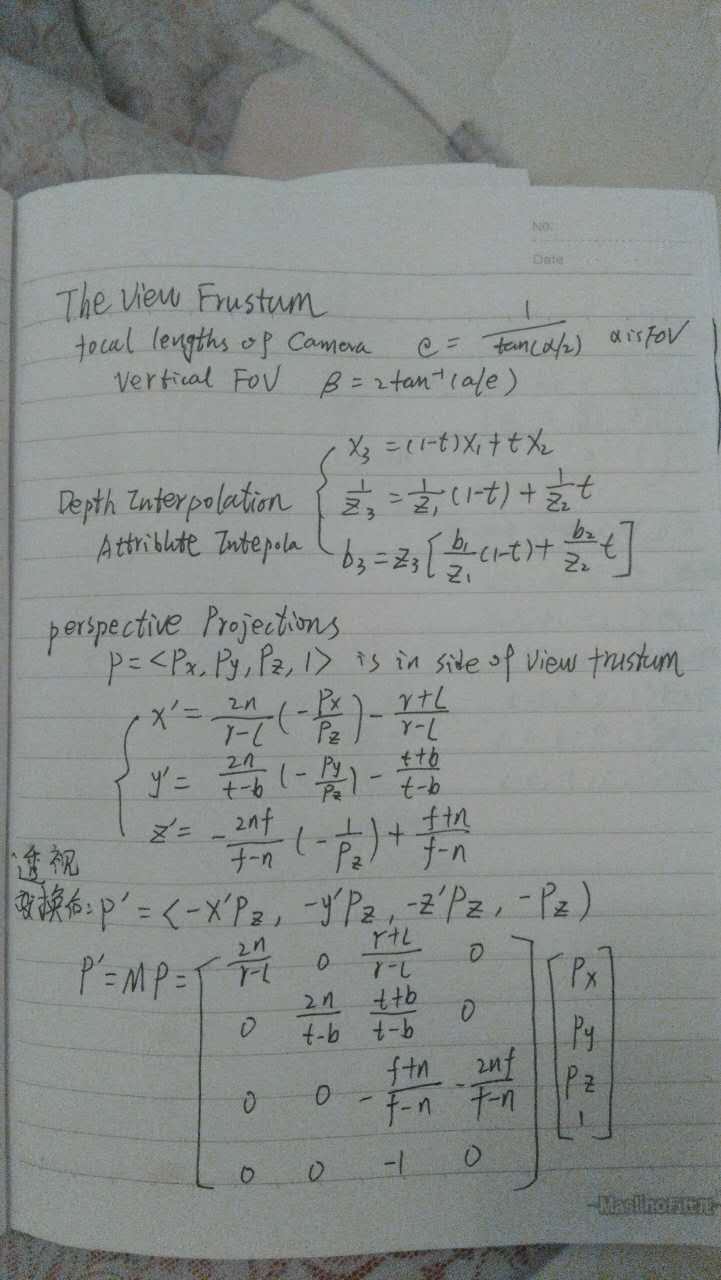 No:
Date
The View Frustum
focal lengths of Camera e = 1/tan(α/2) α is FOV
Vertical FOV β = 2tan⁻¹(a/e)
x₃ = (1-t)x₁ + tx₂
Depth Interpolation 1/z₃ = 1/z₁ (1-t) + 1/z₂ t
Attribute Intepola b₃ = z₃[b₁/z₁ (1-t) + b₂/z₂ t]
perspective Projections
P = <Px, Py, Pz, 1> is in side of view frustum
x' = 2n/r-l (-Px/Pz) - r+l/r-l
y' = 2n/t-b (-Py/Pz) - t+b/t-b
z' = -2nf/f-n (-1/Pz) + f+n/f-n
透视
变换后: P' = <-x'Pz, -y'Pz, -z'Pz, -Pz>
P' = MP = [ 2n/r-l 0 r+l/r-l 0 ] [ Px ]
0 2n/t-b t+b/t-b 0 Py
0 0 -f+n/f-n -2nf/f-n Pz
0 0 -1 0 1